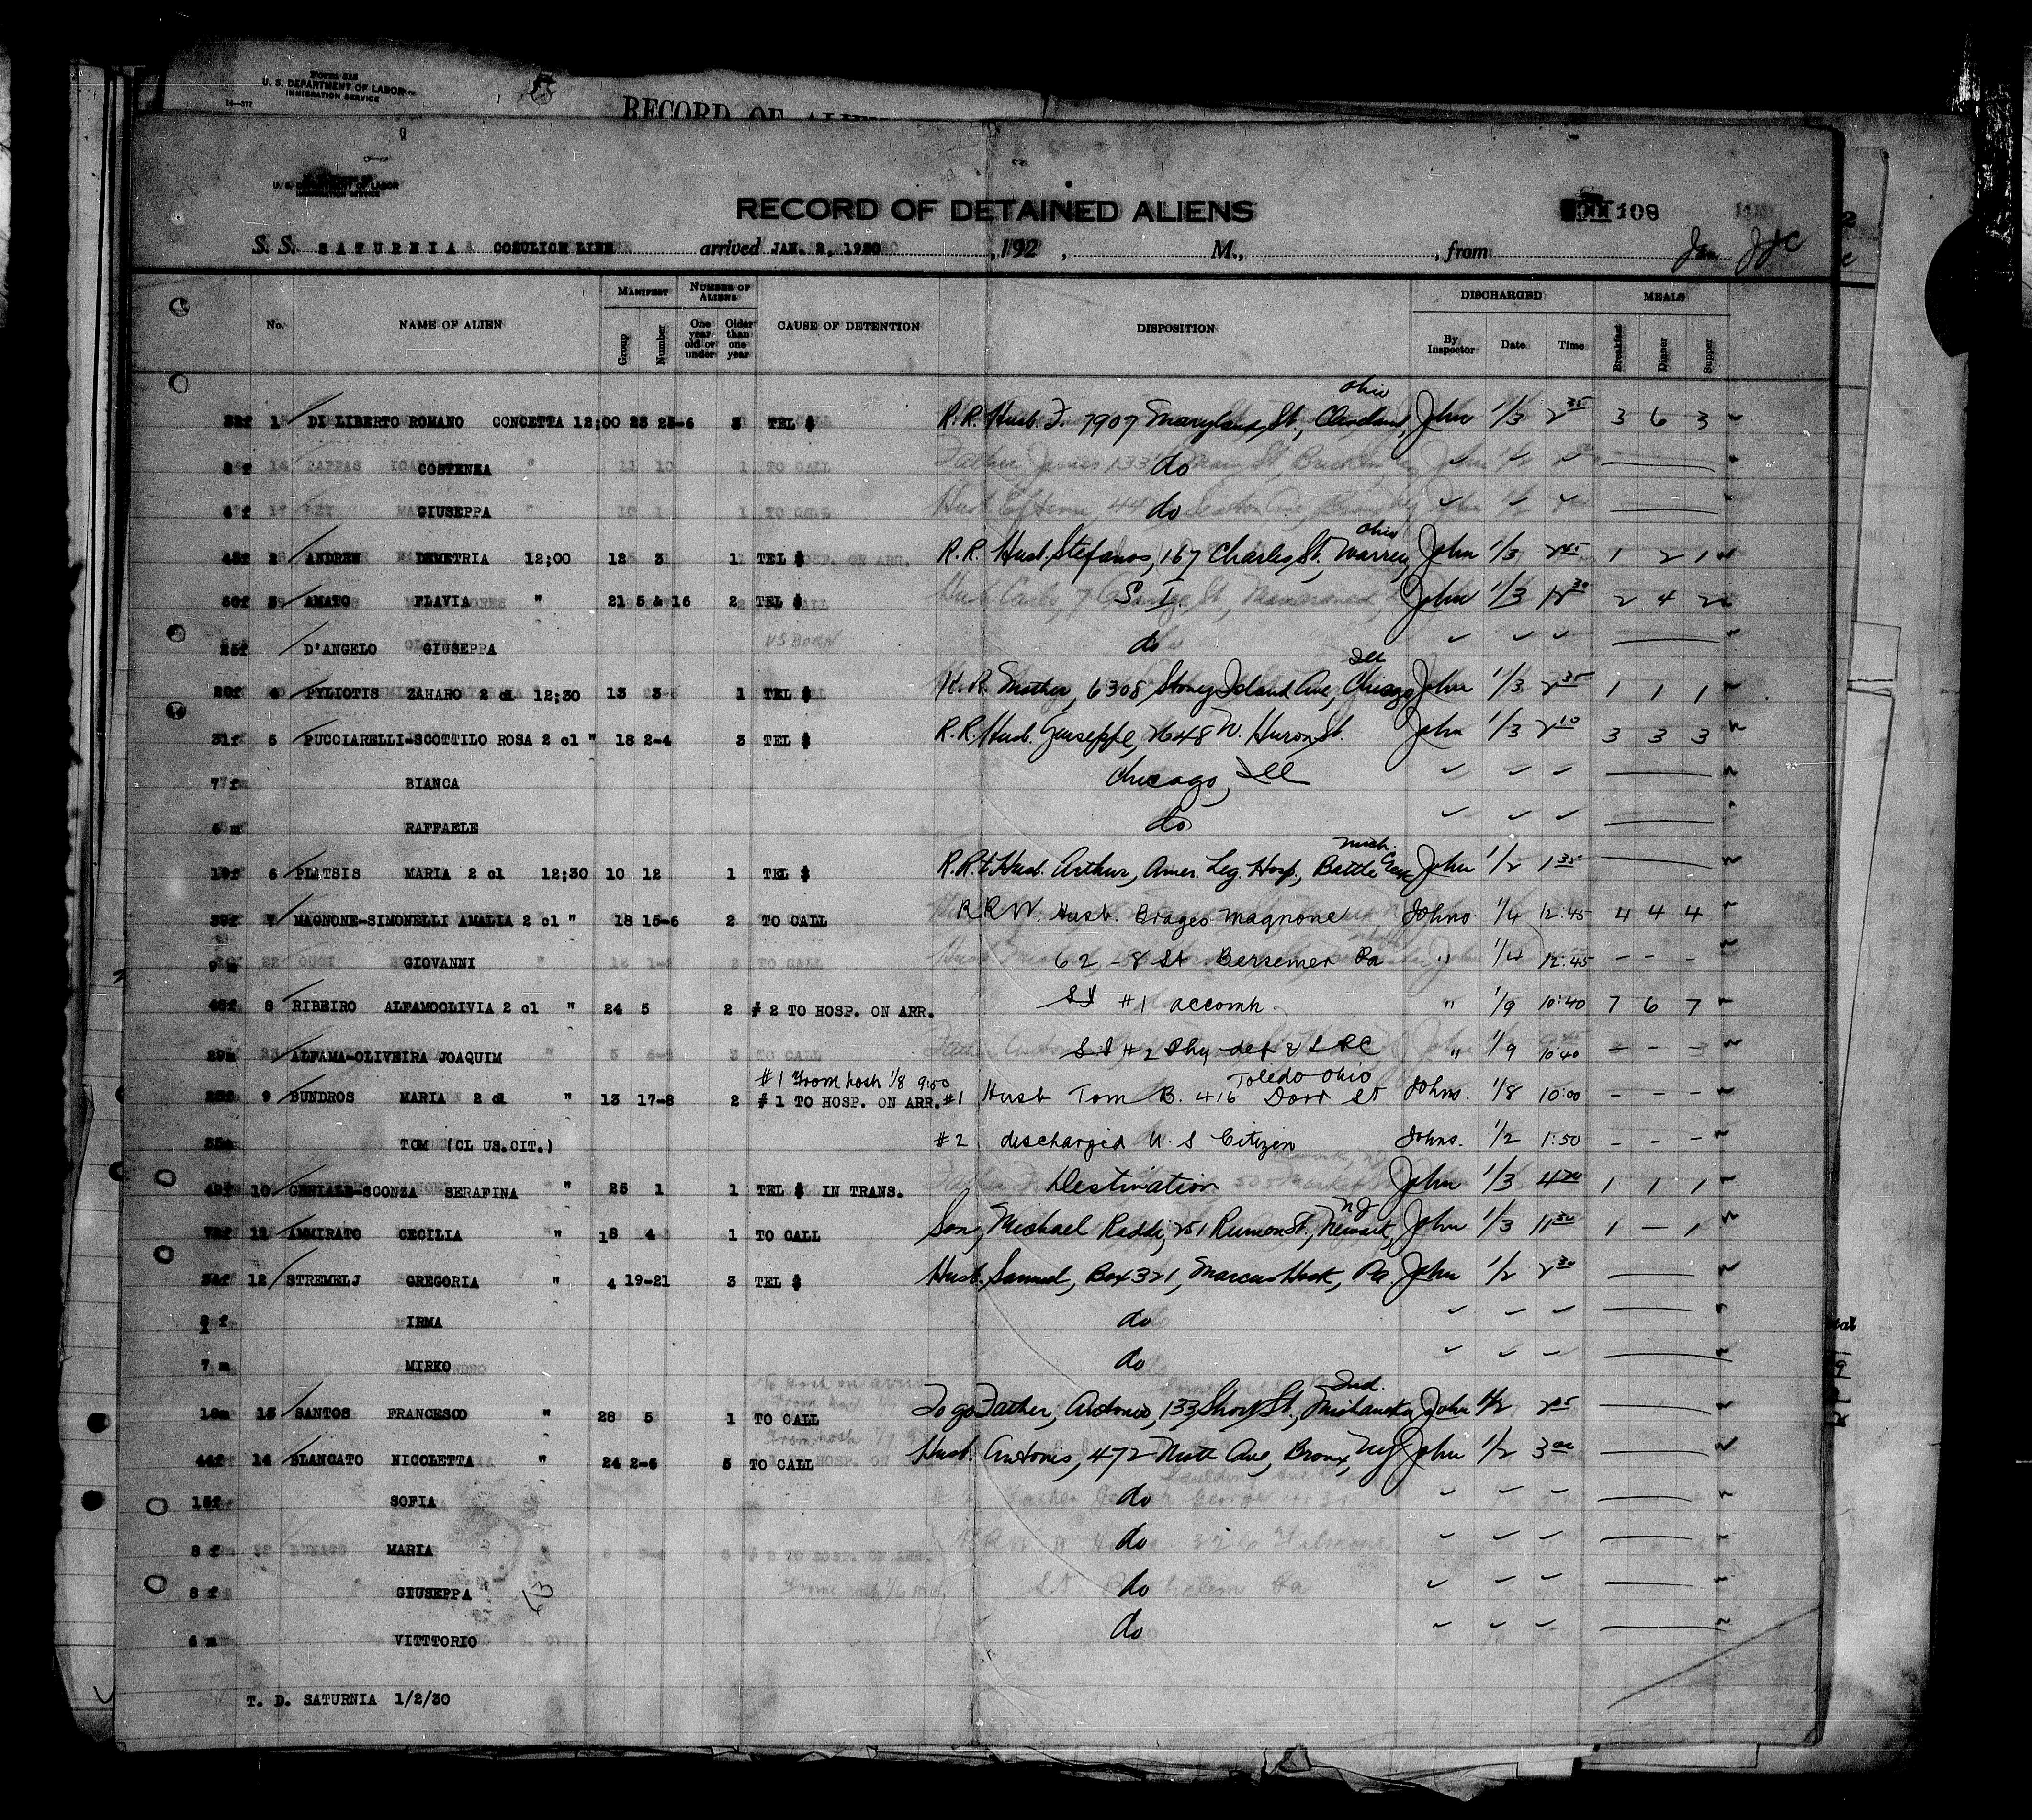 Form 518
U. S. DEPARTMENT OF LABOR
IMMIGRATION SERVICE
14—377
RECORD OF
U. S. DEPARTMENT OF LABOR
IMMIGRATION SERVICE
RECORD OF DETAINED ALIENS
108
S. S. SATURNIA COSULICH LINE arrived JAN. 2, 1930, 192 , M., from
No. NAME OF ALIEN MANIFEST Group Number NUMBER OF ALIENS One year old or under Older than one year CAUSE OF DETENTION DISPOSITION DISCHARGED By Inspector Date Time MEALS Breakfast Dinner Supper
Ohio
1 DI LIBERTO ROMANO CONCETTA 12;00 23 23-6 3 TEL $ R.R. Husb. F. 7907 Maryland St., Cleveland, John 1/3 2 35 3 6 3
COSTENZA do
GIUSEPPA do
Ohio
2 ANDREW DEMETRIA 12;00 12 3 1 TEL $ R.R. Husb. Stefanos, 167 Charles St., Warren, John 1/3 2 45 1 2 1
3 AMATO FLAVIA " 21 5 & 16 2 TEL $ S. I. John 1/3 2 4 2
25f D'ANGELO GIUSEPPA do
Ill
20f 4 PYLIOTIS ZAHARO 2 cl 12;30 13 3 1 TEL $ R.R. Mother, 6308 Stoney Island Ave, Chicago John 1/3 2 35 1 1 1
31f 5 PUCCIARELLI-SCOTTILO ROSA 2 cl " 18 2-4 3 TEL $ R.R. Husb. Giuseppe, 2648 W. Huron St. John 1/3 2 10 3 3 3
7 f BIANCA Chicago, Ill
6 m RAFFAELE do
Mich.
19f 6 PLATSIS MARIA 2 cl 12;30 10 12 1 TEL $ Husb. Arthur, Amer. Leg. Hosp., Battle Creek John 1/2 1 35
39f 7 MAGNONE-SIMONELLI AMALIA 2 cl " 18 15-6 2 TO CALL R R W. Husb. Brages Magnone Johns. 1/4 12:45 4 4 4
9 m GIOVANNI 62 - 8 St Bersemer Pa " 1/4 12:45 - - -
8 RIBEIRO ALFAMOOLIVIA 2 cl " 24 5 2 # 2 TO HOSP. ON ARR. S I #1 accomp. " 1/9 10:40 7 6 7
29m ALFAMA-OLIVEIRA JOAQUIM S I #2 Phy def & L P C " 1/9 10:40 - -
#1 From hosp 1/8 9:50 Toledo Ohio
9 BUNDROS MARIA 2 cl " 13 17-8 2 # 1 TO HOSP. ON ARR. #1 Husb Tom B. 416 Dorr St Johns. 1/8 10:00 - - -
35m TOM (CL US.CIT.) #2 discharged U. S Citizen Johns. 1/2 1:50 - - -
10 GENIALE-SCONZA SERAFINA " 25 1 1 TEL $ IN TRANS. Destination John 1/3 4 20 1 1 1
NJ
11 AMMIRATO CECILIA " 18 4 1 TO CALL Son, Michael Raddi, 251 St., Newark, John 1/3 11 30 1 — 1
34f 12 STREMELJ GREGORIA " 4 19-21 3 TEL $ Husb. Samuel, Box 321, Marcus Hook, Pa John 1/2 2 30
8 f IRMA do
7 m MIRKO do
Ind.
13 SANTOS FRANCESCO " 28 5 1 TO CALL To go Father, Antonio, 133 Short St., Mishawaka John 1/2
44f 14 BLANCATO NICOLETTA " 24 2-6 5 TO CALL Husb. Antonio, 472 Mott Ave, Bronx, NY John 1/2 3 00
15f SOFIA do
8 f MARIA do
8 f GIUSEPPA do
6 m VITTTORIO do
T. D. SATURNIA 1/2/30